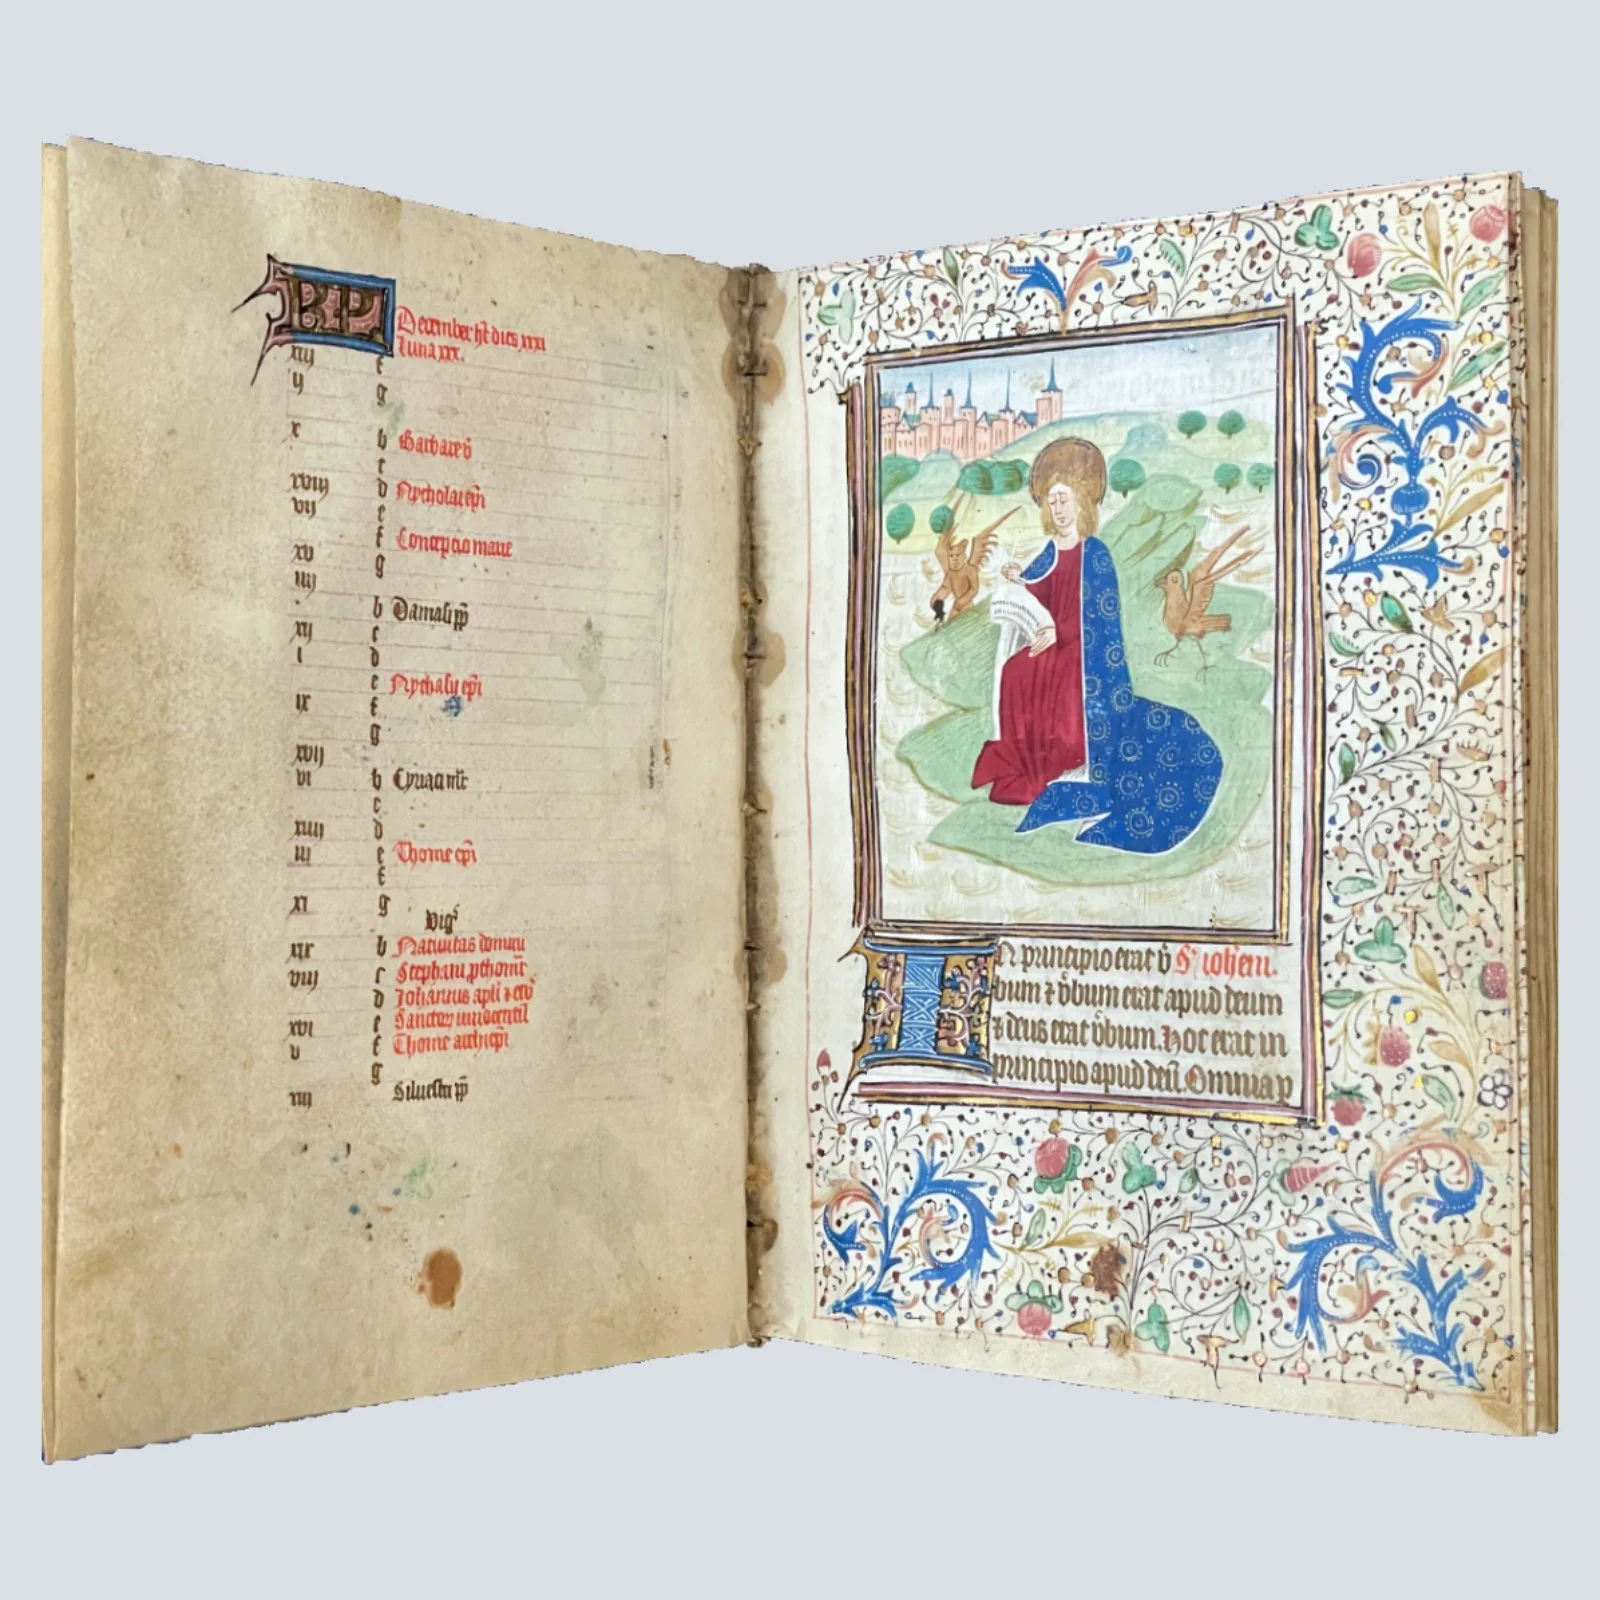 KL Decembe hт dies xxxi
Luna xxx.
xiij f
ij g
x b Barbare v̄
c
xviij d Nycholai ep̄i
vij e
f Concepcio marie
xv g
iiij
b Damasi pp̄
xij c
i d
e Nychasij ep̄i
ix f
g
xvij
vi b Cyriaci mr̄
c
xiiij d
iij e Thome ep̄i
f
xi g
vigꝰ
xix b Natiuitas domini
viij c Stephani ꝓthomr̄
d Johannis apl̄i ⁊ ew̄
xvi e Sanctoꝝ innocentū
v f Thome archiep̄i
g
xiij Siluestri pp̄
IN principio erat v̄ S. ioh̄em.
bum ⁊ v̄bum erat apud deum
⁊ deus erat v̄bum. Hoc erat in
principio apud deū. Omnia p